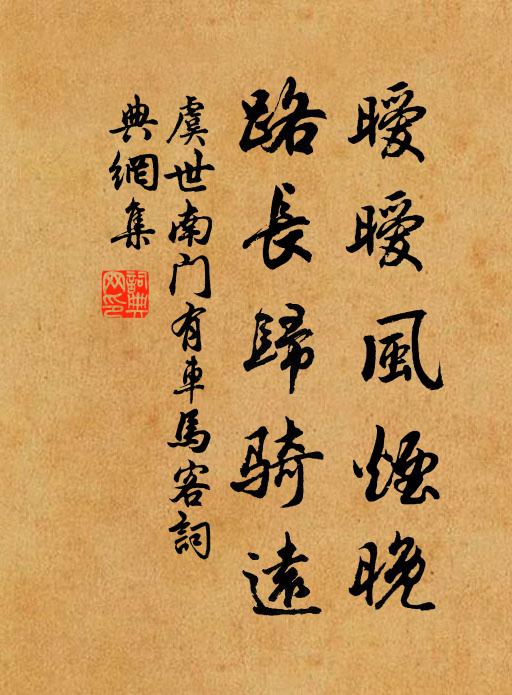 曖曖風煙晚
路長歸騎遠
虞世南門有車馬客詞
典網集
詞典网印